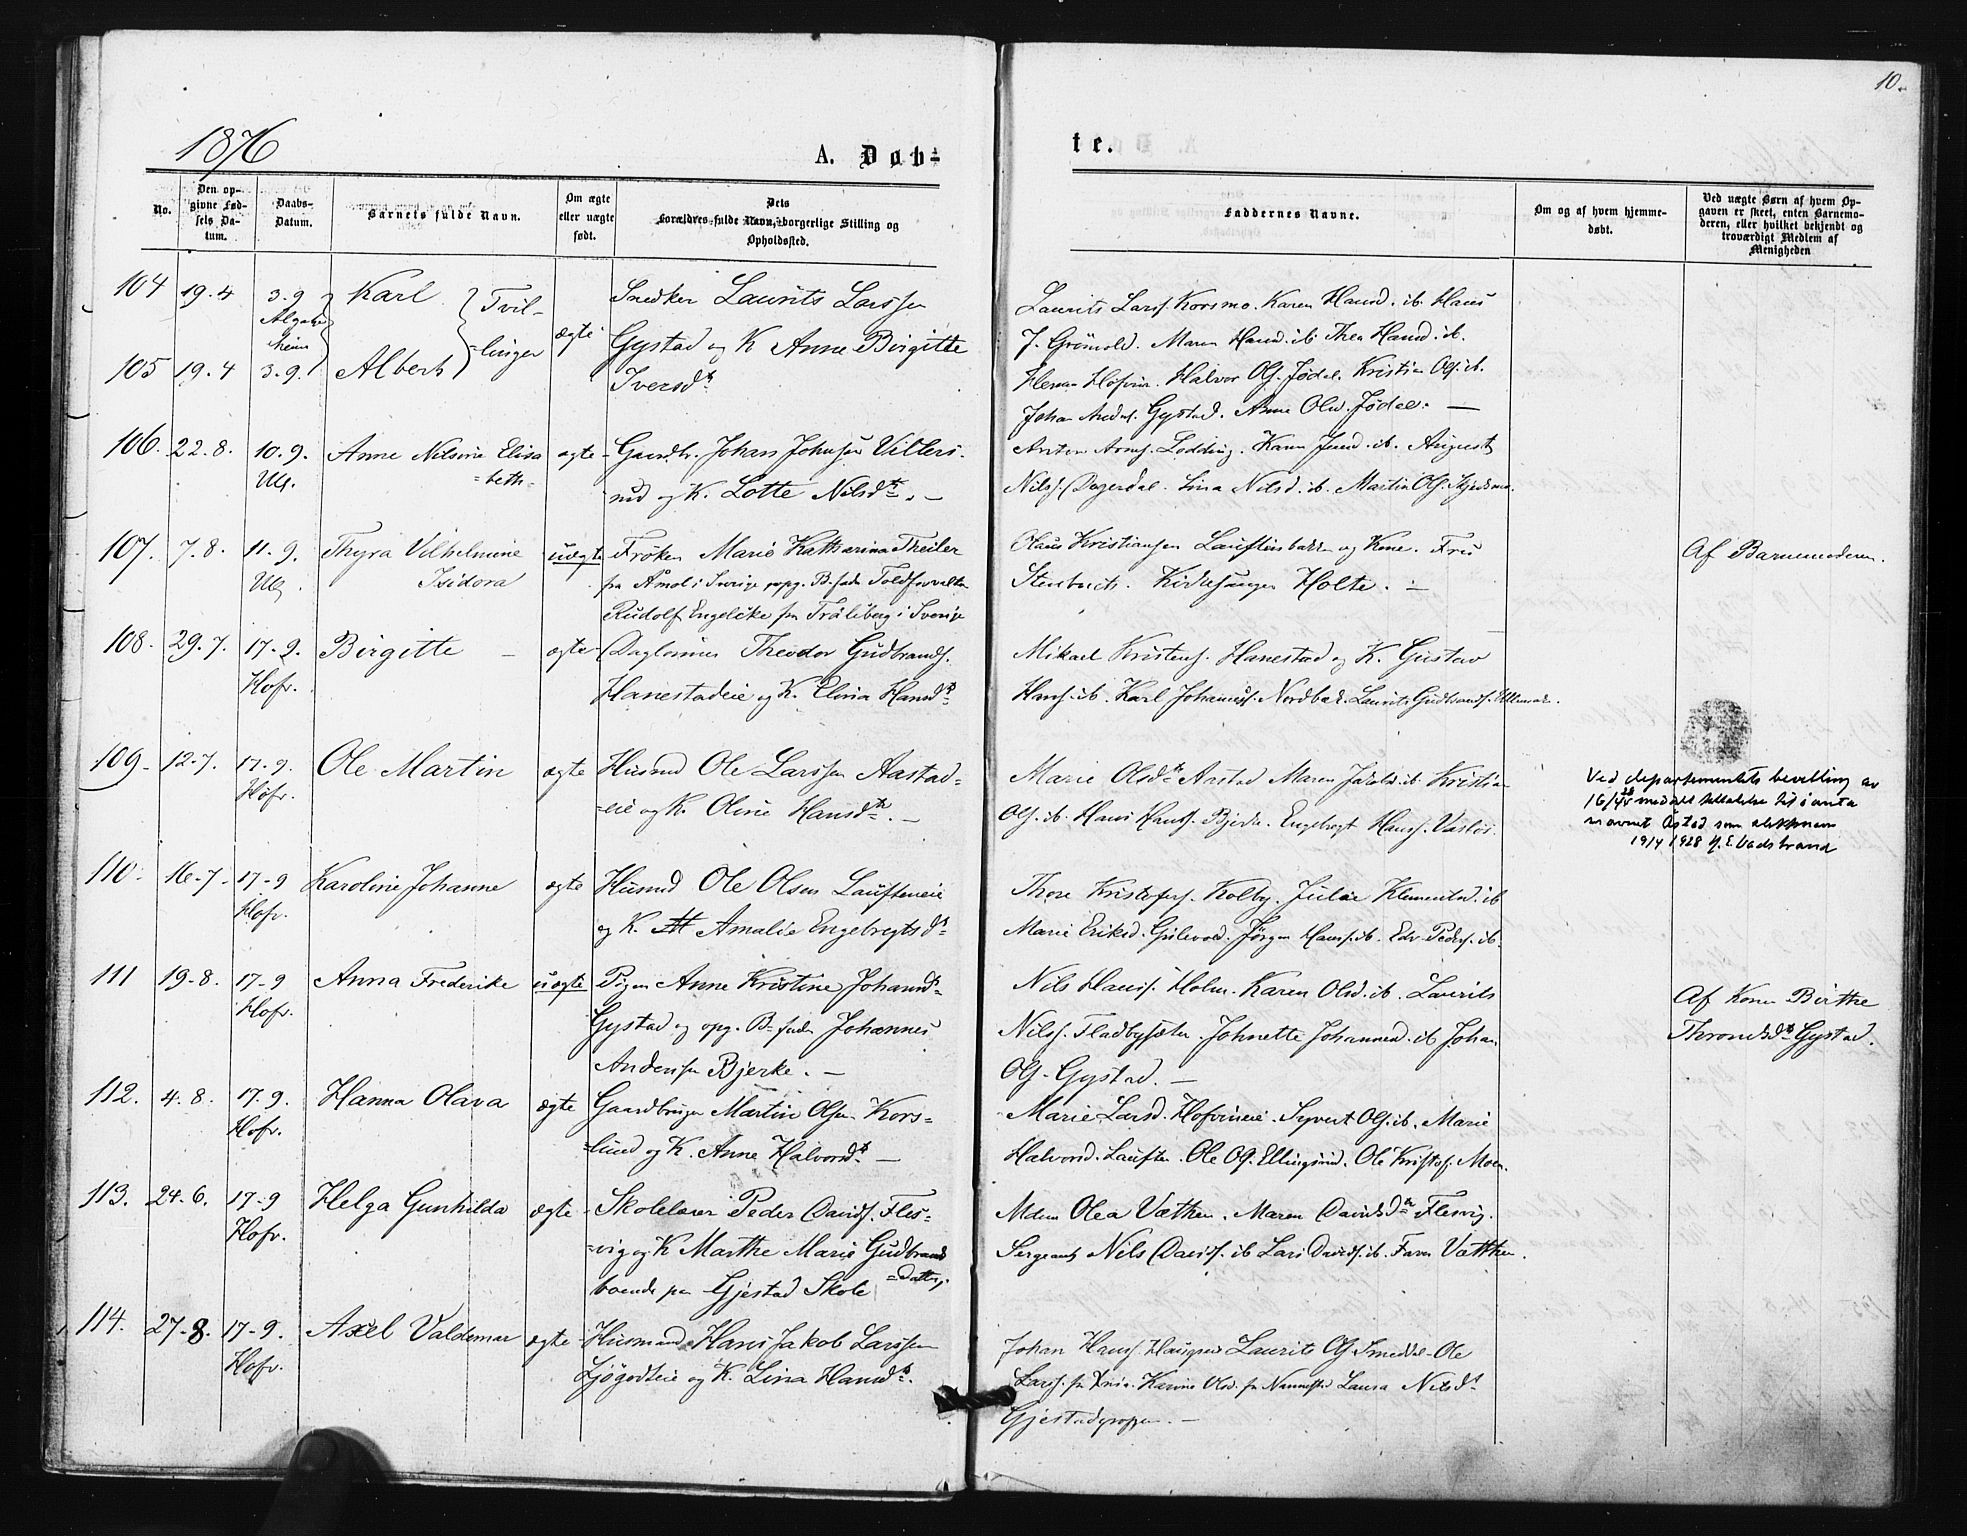 10.
1876
A. Døb-
te.
No.
Den op-
givne Fød-
sels Da-
tum.
Daabs-
Datum.
Barnets fulde Navn.
Om ægte
eller uægte
født.
Dets
Forældres fulde Navn, borgerlige Stilling og
Opholdssted.
Faddernes Navne.
Om og af hvem hjemme-
døbt.
Ved uægte Børn af hvem Op-
gaven er skeet, enten Barnemo-
deren, eller hvilket bekjendt og
troværdigt Medlem af
Menigheden
104 19.4 3.9 Karl Tvil- Snedker Laurits Larssen
105 19.4 3.9. Albert =linger ægte Gystad og K Anne Birgitte
Iversdtr
Laurits Larss. Korsmo. Karen Hansd. ib. Hans
J. Grönvold. Maren Hansd. ib. Thea Hansd. ib.
Hofvin. Halvor Ols. Jödal. Kristian Ols. ib.
Johan Gystad. Anne Olsd. Jödal. —
106. 22.8. 10.9. Anne Nilsine Elisa ægte Gaardbr. Johan Johnsen Villers
Ull. =beth- rud og K. Lotte Nilsdtr. —
Anton Lodding. Karen ib. August
Nilss. Dagerdal. Lina Nilsd. ib. Martin Ols.
107. 7.8. 11.9. Thyra Vilhelmine uægte Frøken Marie Katharina Theiler
Ull. Isidora fra Åmol i Sverige opg. B-fader Toldforvalter
Rudolf Engelike fra Tråleberg i Sverige
Olaus Kristiansen Lauftensbakken og Kone. Fru
Stenbuch. Kirkesanger Holte. —
Af Barnemoderen.
108. 29.7. 17-9. Birgitte — ægte Daglønner Theodor Gudbrands.
Hofv. Hanestadeie og K. Elvia Hansdtr
Mikael Kristens. Hanestad og K. Gustav
Hans. ib. Karl Johanness. Nordbak. Laurits Gudbrands.
109- 12-7. 17.9. Ole Martin ægte Husmd Ole Larssen Aastad-
Hofv. =eie og K. Oline Hansdtr. —
Marie Olsdtr Aastad Maren ib Kristian
Ols. ib. Hans Hanss. Bjerke. Engebregt Hanss. Vasløs.
Ved departementets bevilling av
16/4 28 meddelt tilladelse til å anta
navnet Åstad som slektsnavn
19/4 1928 J. E. Vadstrand
110. 16-7- 17-9 Karoline Johanne ægte Husmd Ole Olsen Lausteneie
Hofv. og K. Amalie Engebregtsdtr
Thore Kristofers. Kolby. Julie Klementsd. ib
Marie Eriksd. Gulevold. Jørgen Hanss. ib. Edv. Peders. ib.
111 19-8. 17-9 Anna Frederike uægte Pigen Anne Kristine Johansdtr
Hofv. Gystad og opg. B-fader Johannes
Andersen Bjerke. —
Nils Hanss. Holm. Karen Olsd. ib. Laurits
Nilss. Fladbysæter. Johnette Johannesd. ib Johan
Ols. Gystad. —
Af Konen Birthe
Throndsdtr Gystad.
112. 4.8. 17.9. Hanna Olava ægte Gaardbruger Martin Olsen Kors-
Hofv. =lund og K. Anne Halvorsdtr —
Marie Larsd. Hofvineie. Syvert Ols. ib. Marie
Halvorsd. Lauften. Ole Ols. Ellingsrud. Ole Kristof. Moen.
113. 24.6. 17-9 Helga Gunhilda ægte Skolelærer Peder Davids. Fles-
Hofv. =vig og K Marthe Marie Gudbrands
boende paa Gjestad Skole =datter,
Mdm Olea Vætten. Maren Davidsdtr Flesvig.
Sergeant Nils Davids. ib Lars Davids. ib. Vætten.
114. 27-8. 17-9. Axel Valdemar ægte Husmand Hans Jakob Larssen
Hofv. Ljøgodteie og K. Lina Hansdtr.
Johan Hanss. Laurits Ols. Smeddal- Ole
Larss. fra Xnia. Karine Olsd. fra Nannestad Laura Nilsdtr
Gjestad —